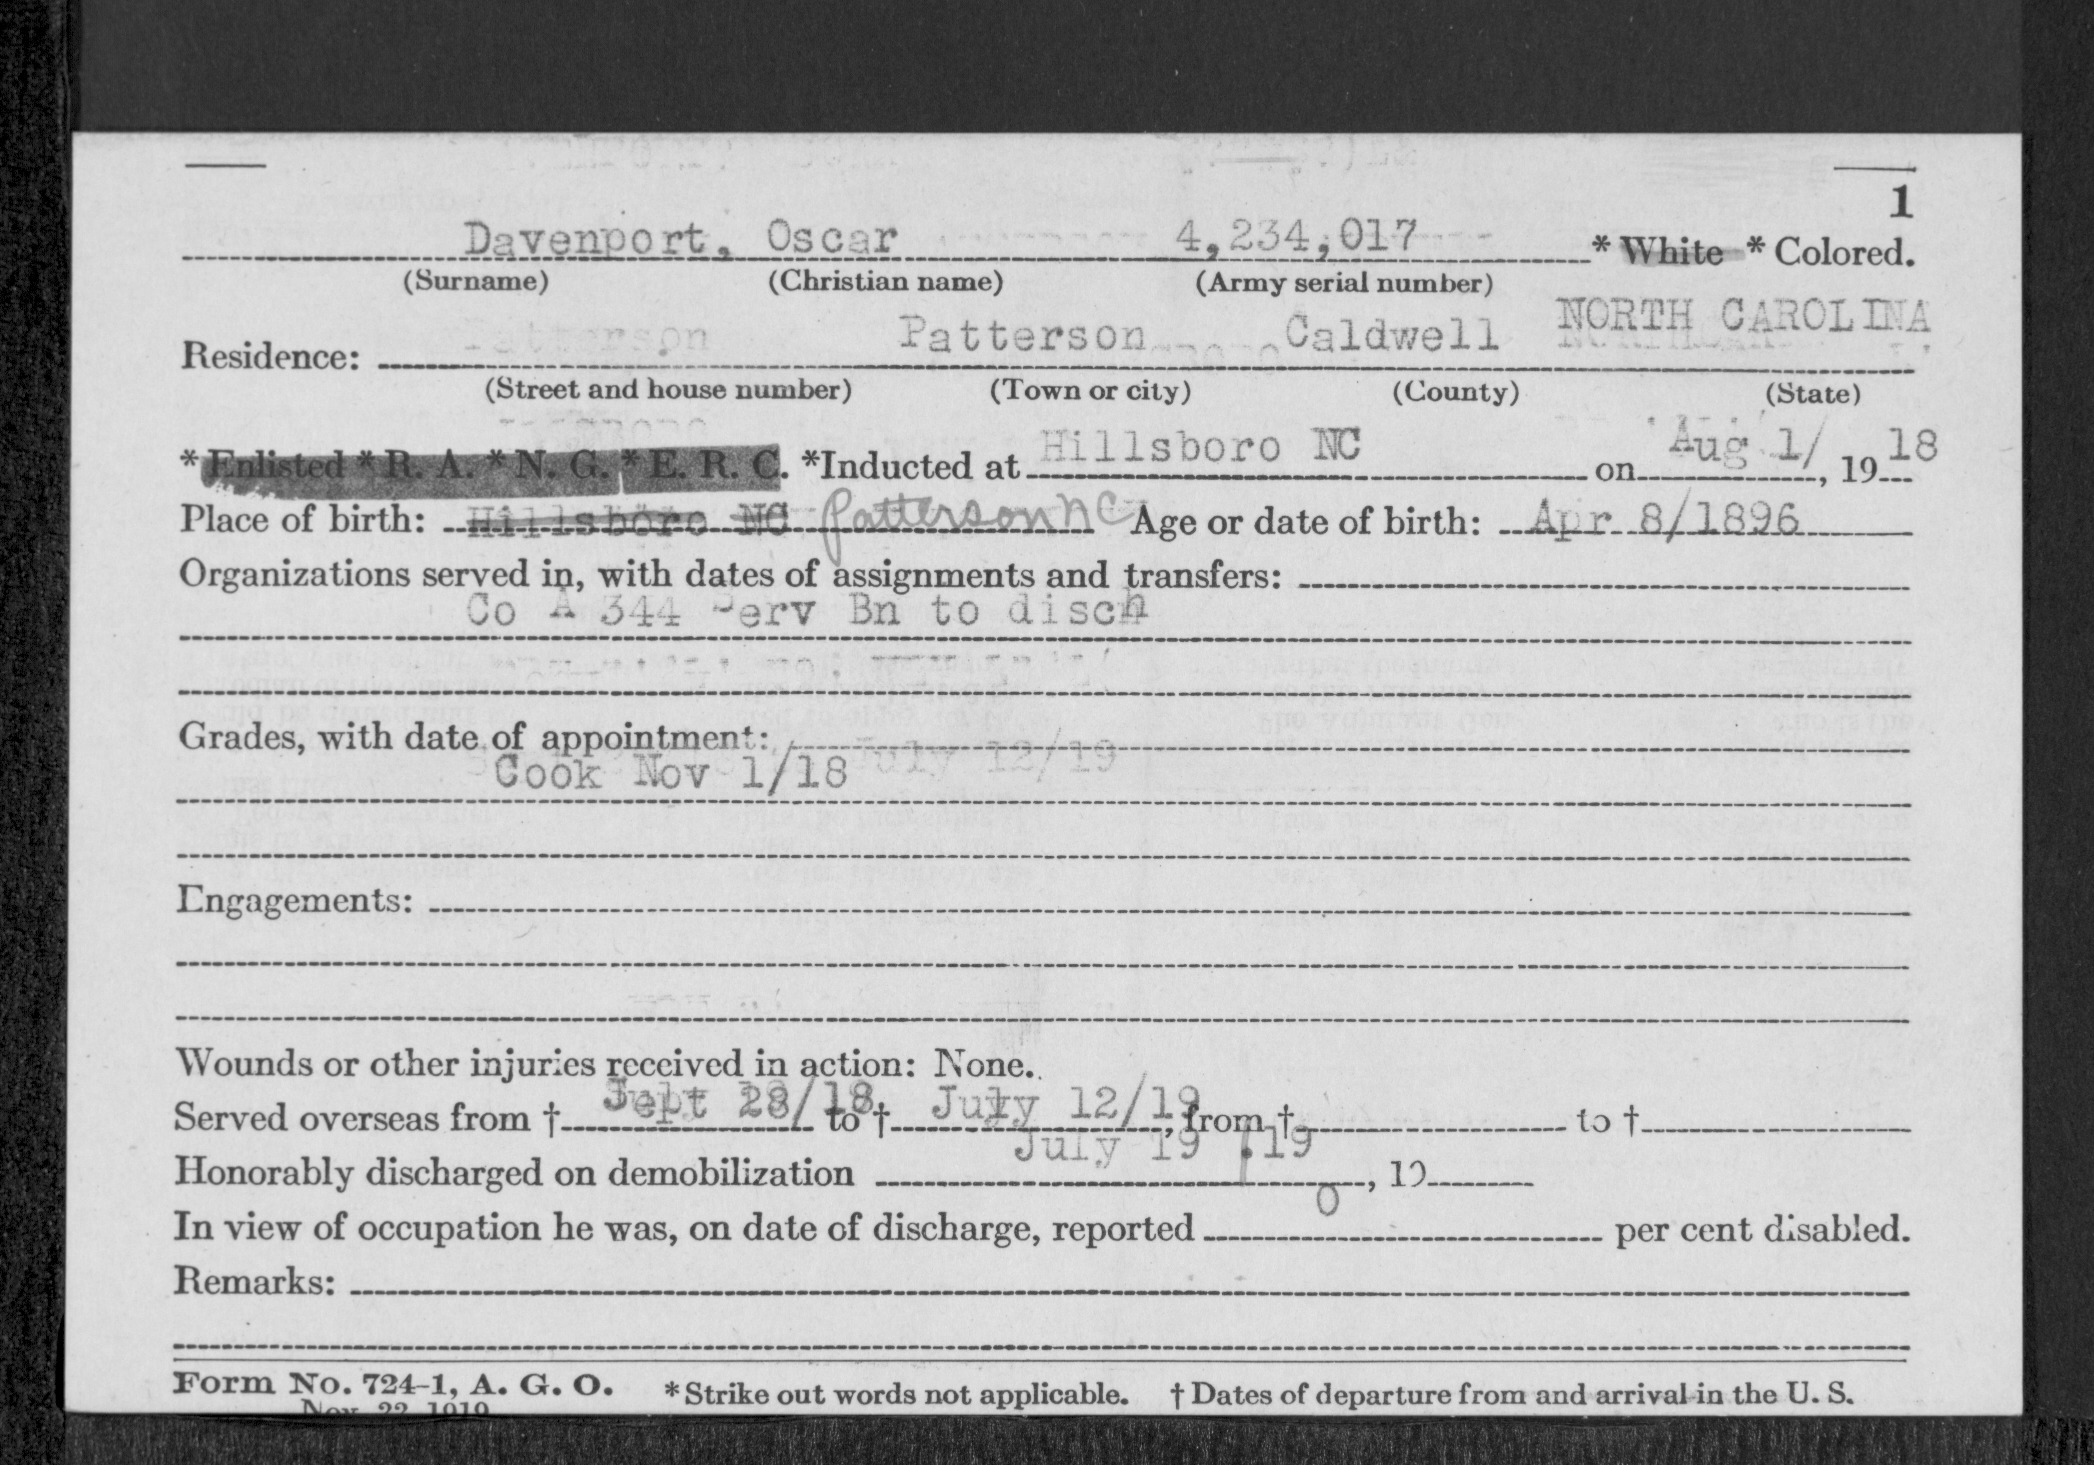 1
Davenport, Oscar 4,234,017 * White * Colored.
(Surname) (Christian name) (Army serial number)
Residence: Patterson Caldwell NORTH CAROLINA
(Street and house number) (Town or city) (County) (State)
* Enlisted * R. A. * N. G. * E. R. C. *Inducted at Hillsboro NC on Aug 1/, 19 18
Place of birth: Hillsboro NC Patterson NC Age or date of birth: Apr 8/1896
Organizations served in, with dates of assignments and transfers:
Co A 344 Serv Bn to disch
Grades, with date of appointment:
Cook Nov 1/18
Engagements:
Wounds or other injuries received in action: None.
Served overseas from † Sept 28/18 to † July 12/19, from † to †
July 19 19
Honorably discharged on demobilization , 19
In view of occupation he was, on date of discharge, reported 0 per cent disabled.
Remarks:
Form No. 724-1, A. G. O. * Strike out words not applicable. † Dates of departure from and arrival in the U. S.
Nov. 22, 1919